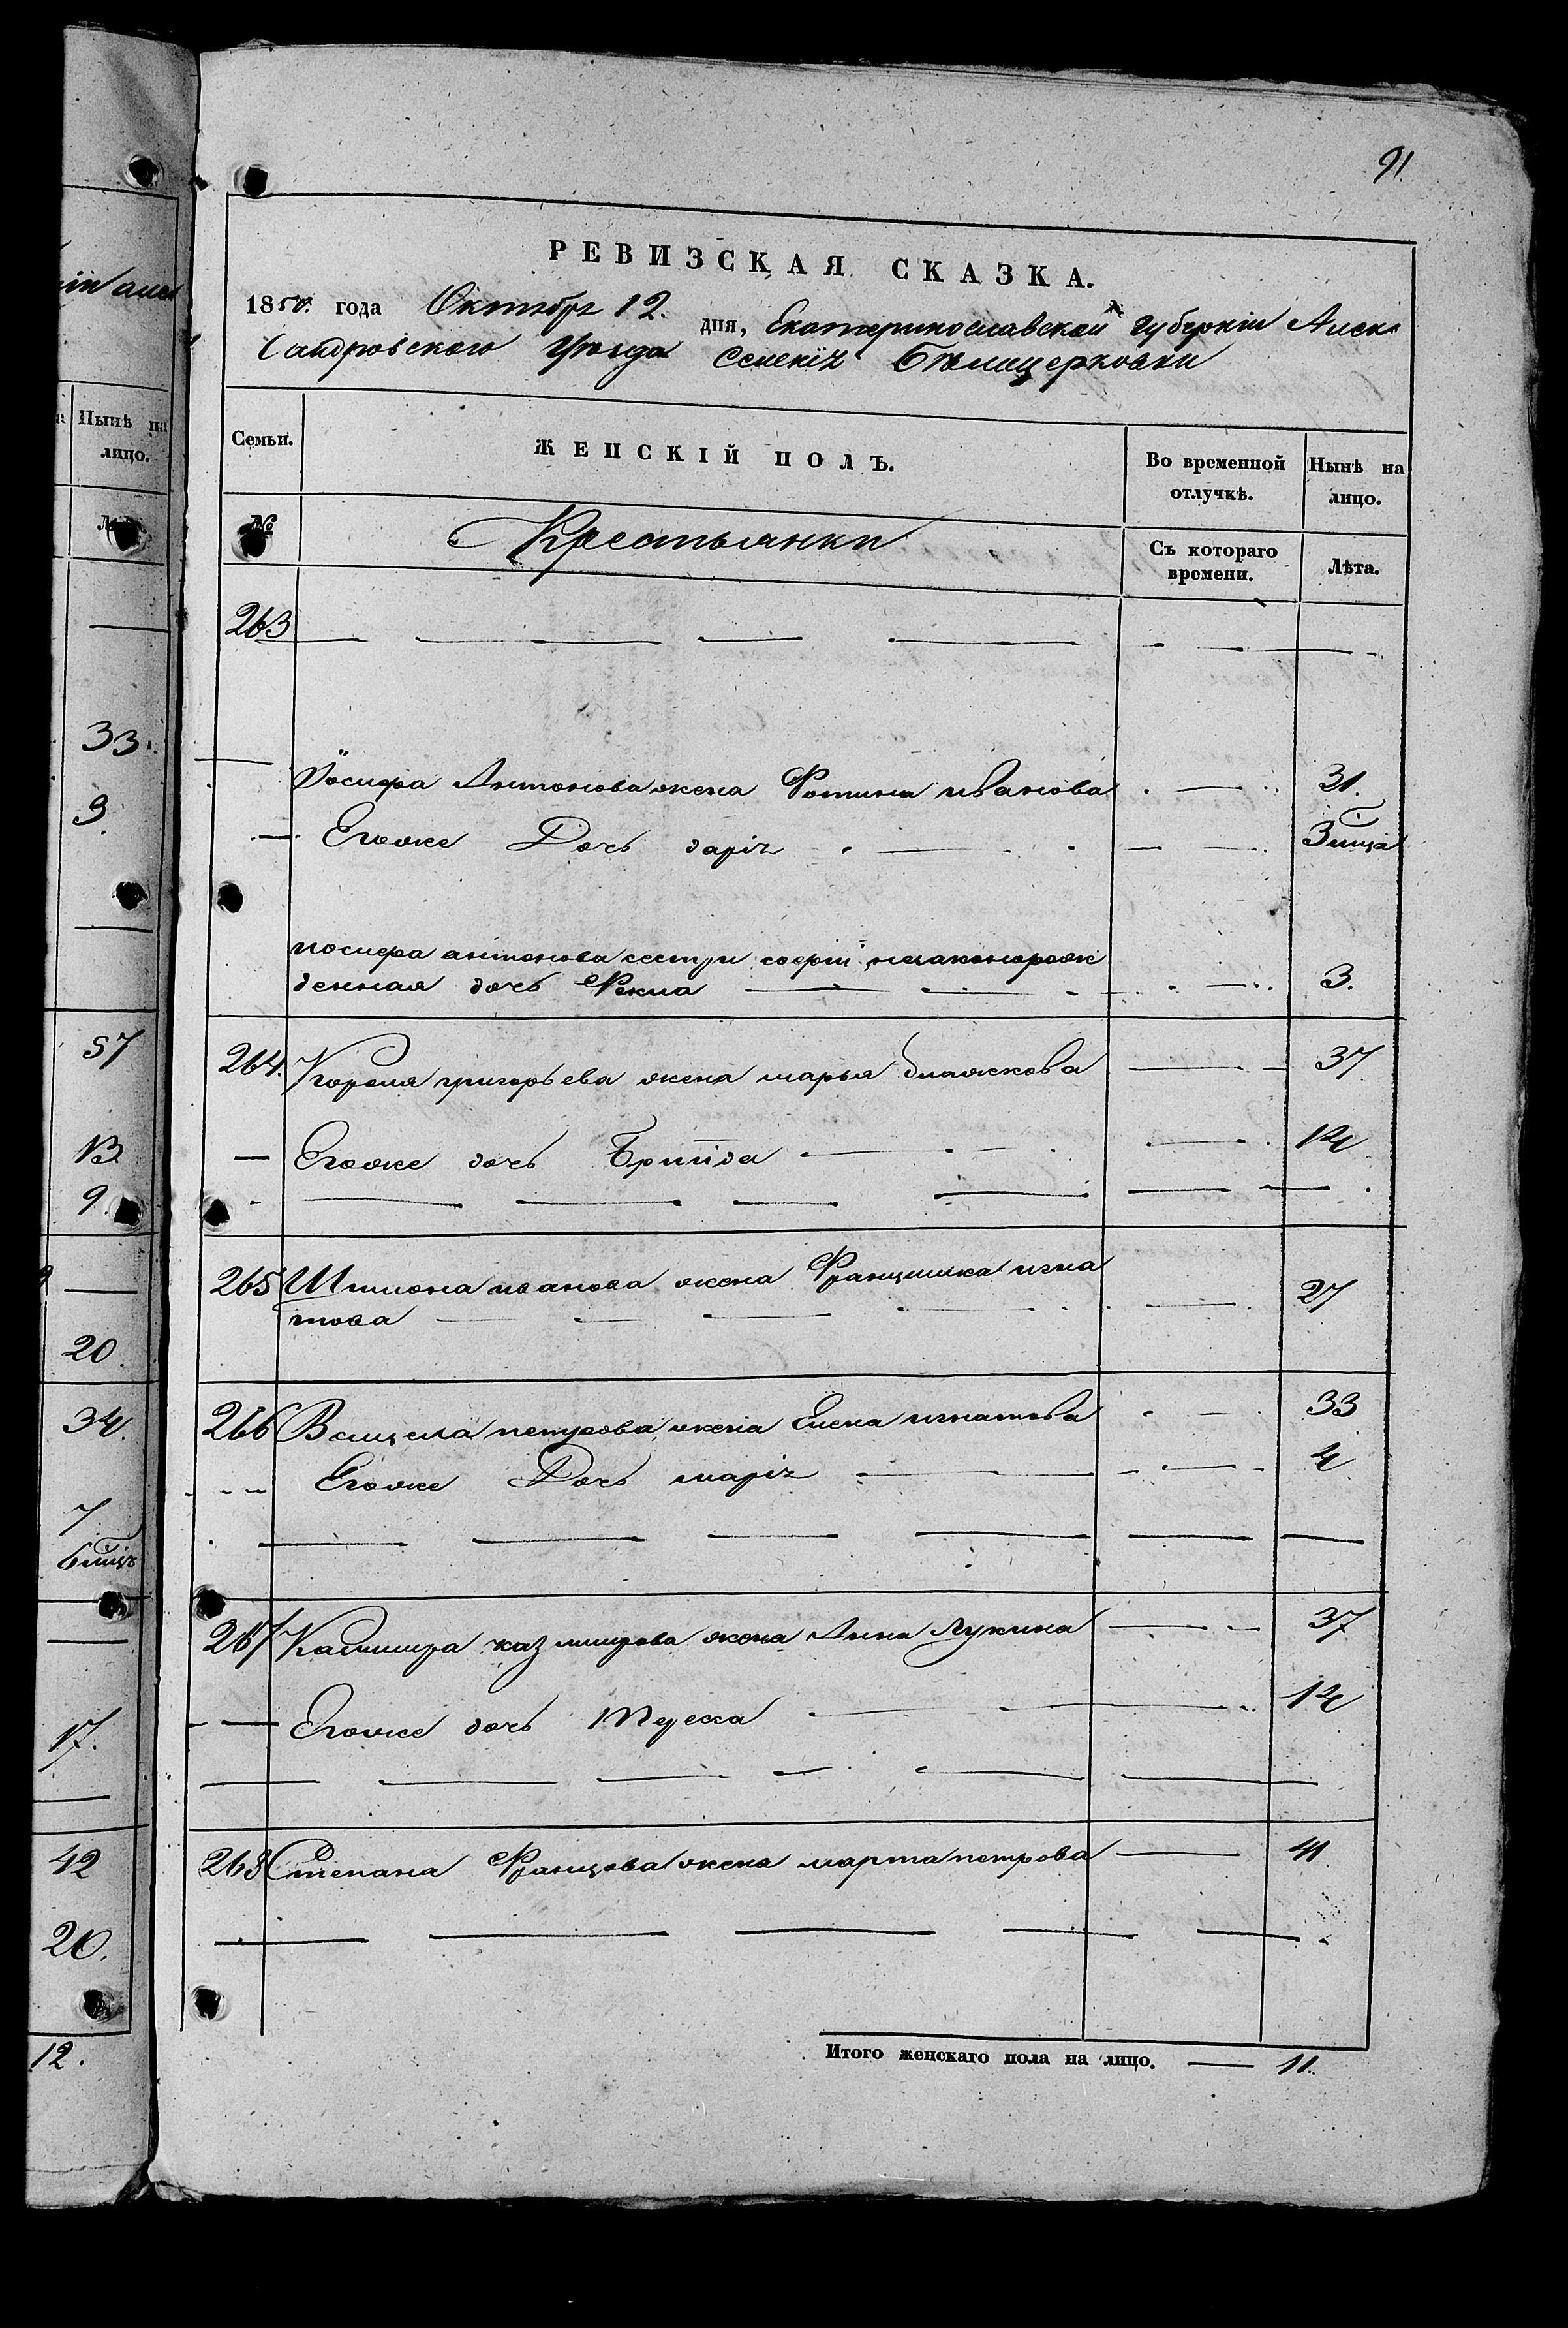 91.
РЕВИЗСКАЯ СКАЗКА.
1850. года Октября 12. дня, Екатеринославской губерніи Алек
сандровского уѣзда селенія Бѣлацерковки
Семьи.
ЖЕНСКІЙ ПОЛЪ.
Во временной отлучкѣ.
Нынѣ на лицо.
№
Крестьянки
Съ котораго времени.
Лѣта.
263
Іосифа Антонова жена Фотина иванова 31.
Егоже Дочь дарія 3 мца
иосифа антонова сестры софіи незаконорож
денная дочь Фекла 3.
264. Кароля григорьева жена марья блажкова 37
Егоже дочь Бригида 14
265 Шимона иванова жена Францишка игна
това 27
266 Вацлава петрова жена Елена игнатова 33
Егоже Дочь марія 4
267 Казимира казимирова жена Анна Лукина 37
Егоже дочь Тереса 14
268 Степана Францова жена марта петрова 41.
Итого женскаго пола на лицо. 11.
Нынѣ на
лицо.
33.
9.
57
13
9
20.
34.
7
6 мцъ
17.
42
20.
12.